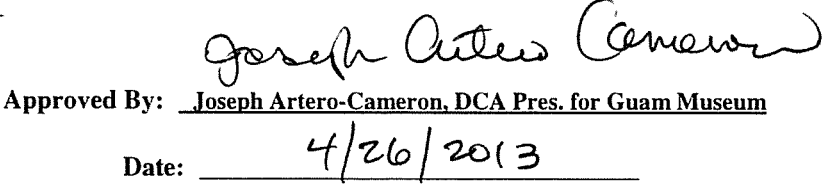 Joseph Artero Cameron
Approved By: Joseph Artero-Cameron, DCA Pres. for Guam Museum
Date: 4/26/2013